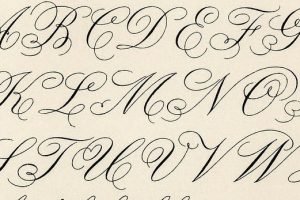 A B C D E F G
K L M N O
S T U V W